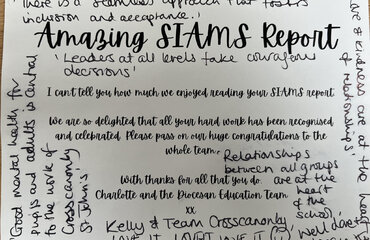 There is a seamless approach that fosters
inclusion and acceptance.'
Amazing SIAMS Report
'Leaders at all levels take courageous
decisions'
I can't tell you how much we enjoyed reading your SIAMS report
We are so delighted that all your hard work has been recognised
and celebrated. Please pass on our huge congratulations to the
whole team.
With thanks for all that you do.
Charlotte and the Diocesan Education Team
xx
Relationships
between all groups
are at the
heart of
the school.'
Good mental health for
pupils and adults is central
to the work of
Crosscanonby
St John's'
Love & kindness are at the heart
of relationships'
Kelly & Team Crosscanonby
LOVE IT LOVE IT LOVE IT
well done